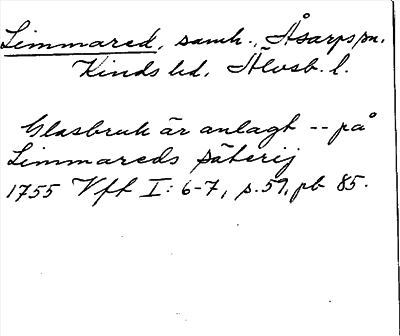 Limmared, samh., Åsarps sn.
Kinds hd, Älvsb. l.
Glasbruk är anlagt -- på
Limmareds säterij
1755 Vft I: 6-7, s. 57, pb 85.